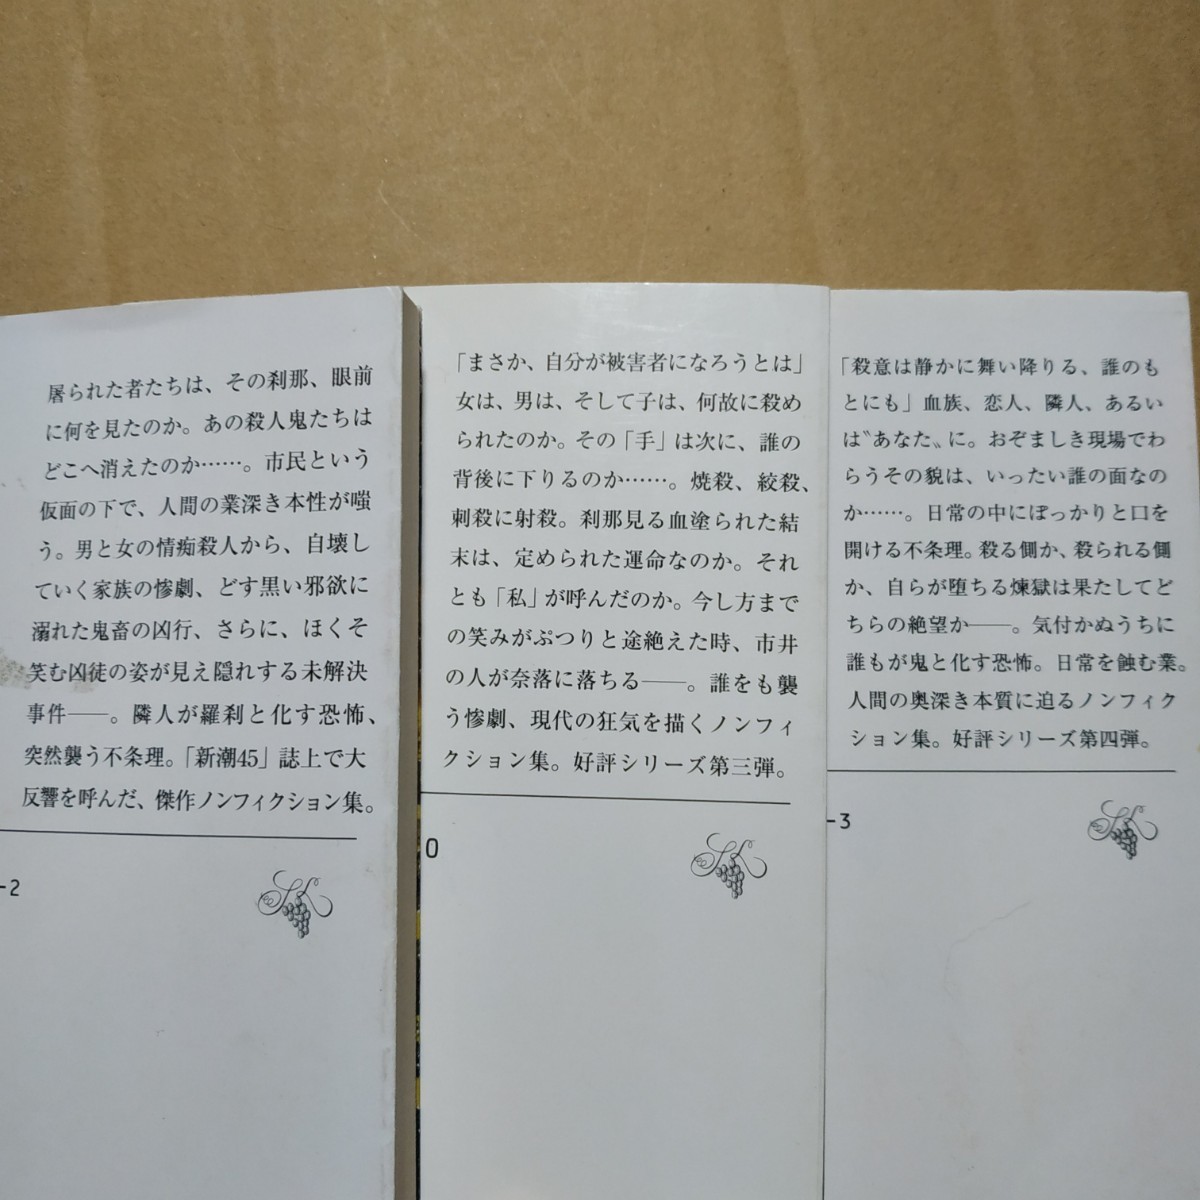 屠られた者たちは、その刹那、眼前
に何を見たのか。あの殺人鬼たちは
どこへ消えたのか……。市民という
仮面の下で、人間の業深き本性が嗤
う。男と女の情痴殺人から、自壊し
ていく家族の惨劇、どす黒い邪欲に
溺れた鬼畜の凶行、さらに、ほくそ
笑む凶徒の姿が見え隠れする未解決
事件――。隣人が羅刹と化す恐怖、
突然襲う不条理。「新潮45」誌上で大
反響を呼んだ、傑作ノンフィクション集。
-2
「まさか、自分が被害者になろうとは」
女は、男は、そして子は、何故に殺め
られたのか。その「手」は次に、誰の
背後に下りるのか……。焼殺、絞殺、
刺殺に射殺。刹那見る血塗られた結
末は、定められた運命なのか。それ
とも「私」が呼んだのか。今し方まで
の笑みがぷつりと途絶えた時、市井
の人が奈落に落ちる――。誰をも襲
う惨劇、現代の狂気を描くノンフィ
クション集。好評シリーズ第三弾。
0
「殺意は静かに舞い降りる、誰のも
とにも」血族、恋人、隣人、あるい
は〝あなた〟に。おぞましき現場でわ
らうその貌は、いったい誰の面なの
か……。日常の中にぽっかりと口を
開ける不条理。殺る側か、殺られる側
か、自らが堕ちる煉獄は果たしてど
ちらの絶望か――。気付かぬうちに
誰もが鬼と化す恐怖。日常を蝕む業。
人間の奥深き本質に迫るノンフィク
ション集。好評シリーズ第四弾。
-3